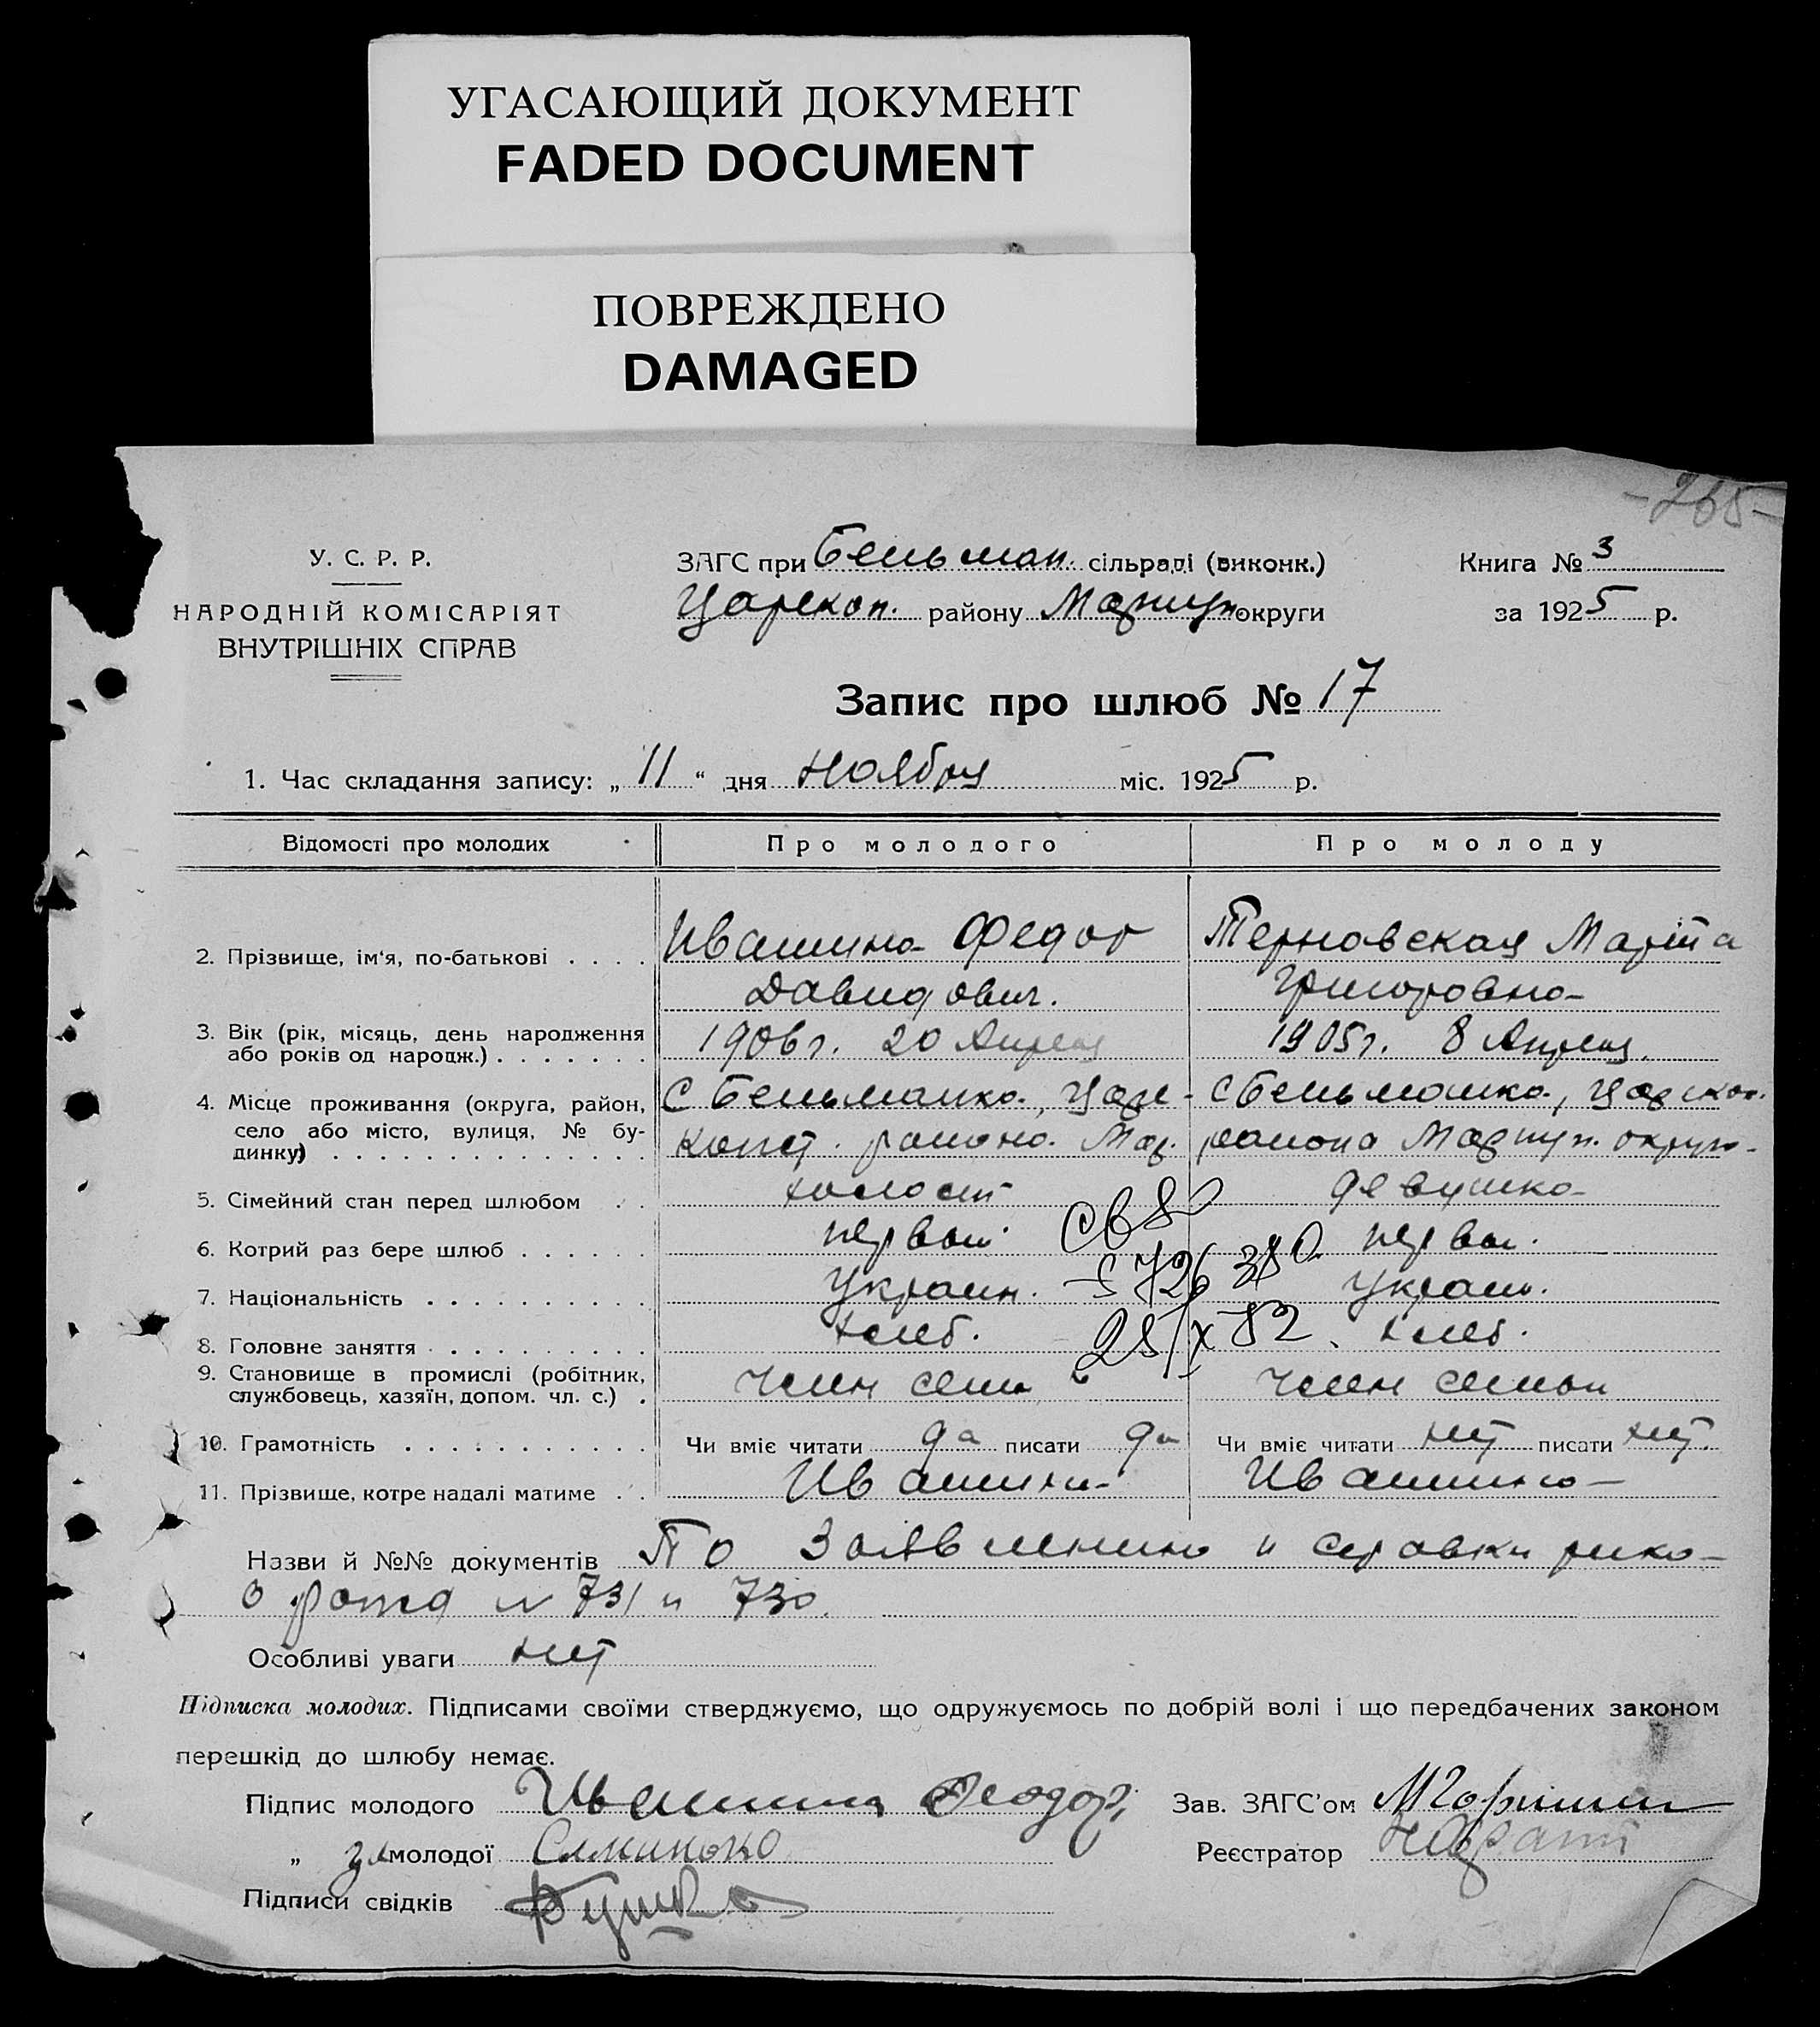 УГАСАЮЩИЙ ДОКУМЕНТ
FADED DOCUMENT
ПОВРЕЖДЕНО
DAMAGED
-265-
У. С. Р. Р.
НАРОДНІЙ КОМІСАРІЯТ
ВНУТРІШНІХ СПРАВ
ЗАГС при Бельман. сільраді (виконк.)
Царекон. району Мариуп округи
Книга № 3
за 1925 р.
Запис про шлюб № 17
1. Час складання запису: „ 11 “ дня Ноября міс. 1925 р.
Відомості про молодих Про молодого Про молоду
2. Прізвище, ім‘я, по-батькові Ивашина Федор Давидович. Терновская Марфа Григоровна
3. Вік (рік, місяць, день народження
або років од народж.) 1906 г. 20 Апреля 1905 г. 8 Апреля.
4. Місце проживання (округа, район,
село або місто, вулиця, № бу-
динку) С Бельманка, Царе-конст. района. Мар. С Бельманка, Царекон. района Мариуп. округа
5. Сімейний стан перед шлюбом холост девушка
6. Котрий раз бере шлюб первый первый.
7. Національність Украин. Украин.
8. Головне заняття хлеб. хлеб.
9. Становище в промислі (робітник,
службовець, хазяїн, допом. чл. с.) член семьи член семьи
10. Грамотність Чи вміє читати да писати да Чи вміє читати нет писати нет.
11. Прізвище, котре надалі матиме Ивашина Ивашина
28/X 82
Назви й №№ документів По Заявлению и справки
№ 731 и 730.
Особливі уваги нет
Підписка молодих. Підписами своїми стверджуємо, що одружуємось по добрій волі і що передбачених законом
перешкід до шлюбу немає.
Підпис молодого Ивашина Феодор Зав. ЗАГС'ом
„ за молодої Реєстратор
Підписи свідків